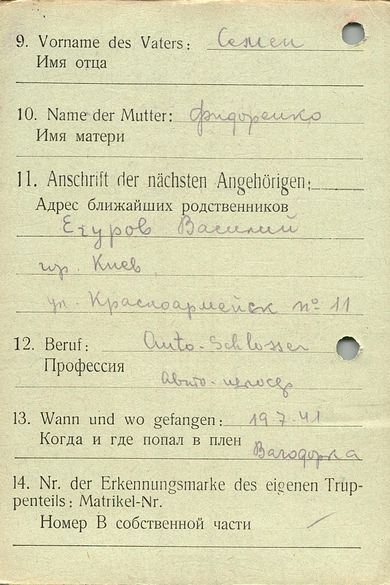 9. Vorname des Vaters: Семен
Имя отца
10. Name der Mutter: Фидоренко
Имя матери
11. Anschrift der nächsten Angehörigen:
Адрес ближайших родственников
Егуров Василий
гор. Киев
ул. Красноармейск № 11
12. Beruf: Auto-Schlosser
Профессия
Авто-слюсар
13. Wann und wo gefangen: 19 7.41
Когда и где попал в плен
14. Nr. der Erkennungsmarke des eigenen Trup-
penteils: Matrikel-Nr.
Номер В собственной части